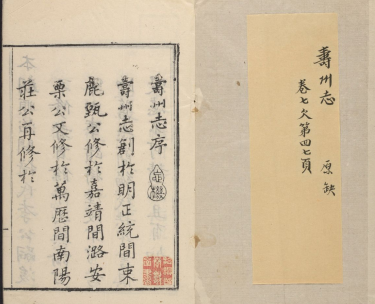 壽州志
卷七欠第四七頁
原缺
壽州志序
壽州志創於明正統間東
鹿甄公修於嘉靖間潞安
栗公又修於萬曆間南陽
莊公再修於